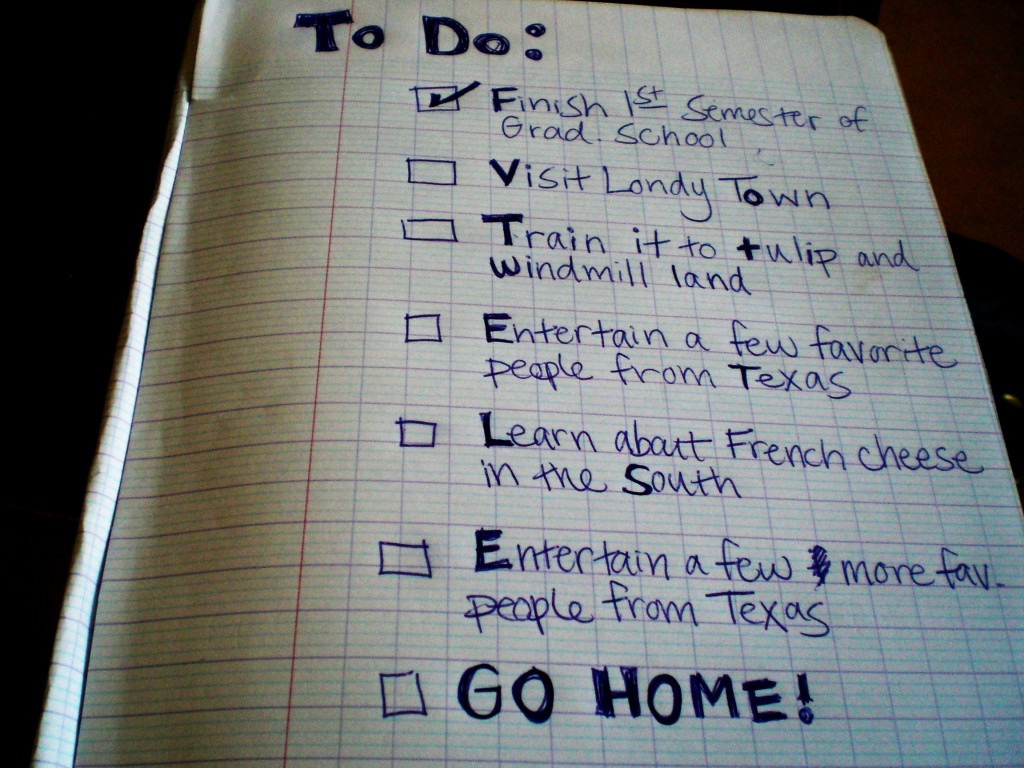 To Do:
Finish 1st Semester of
Grad. School
Visit Londy Town
Train it to tulip and
windmill land
Entertain a few favorite
people from Texas
Learn about French cheese
in the South
Entertain a few more fav.
people from Texas
GO HOME!